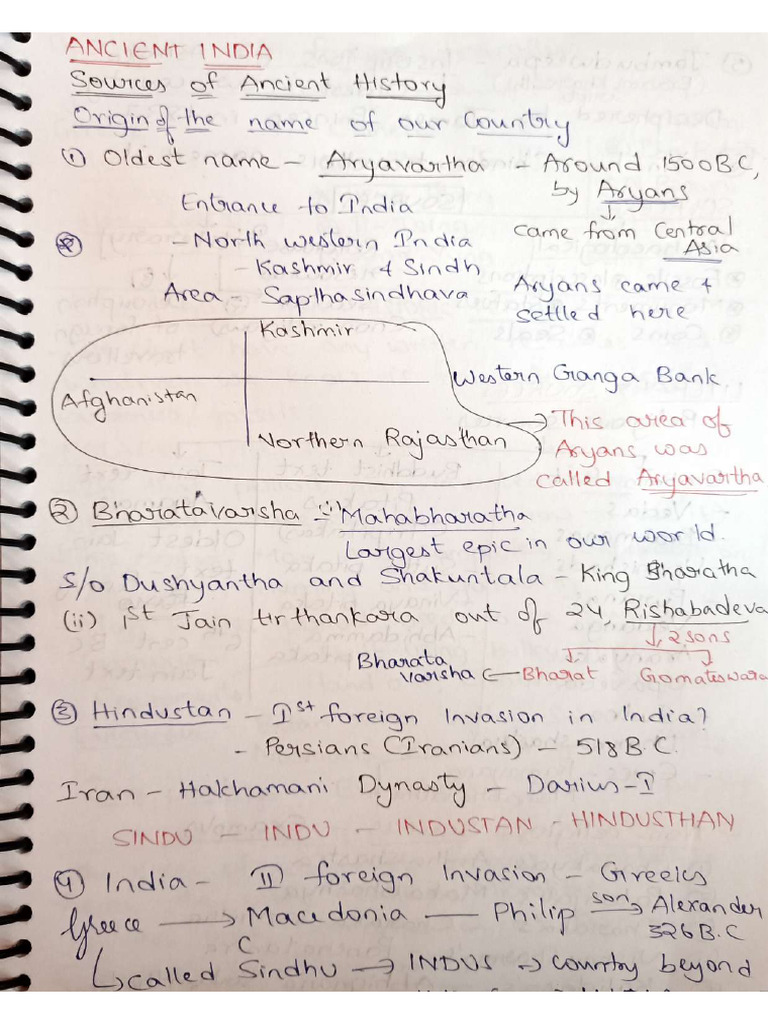 ANCIENT INDIA
Sources of Ancient History
Origin of the name of our Country
① Oldest name - Aryavartha - Around 1500 BC,
by Aryans
Entrance to India
came from Central
Asia
- North western India
- Kashmir & Sindh
Area - Sapthasindhava - Aryans came &
settled here
Kashmir
Western Ganga Bank
Afghanistan
Northern Rajasthan
This area of
Aryans, was
called Aryavartha
② Bharatavarsha :- (i) Mahabharatha
Largest epic in our world.
S/o Dushyantha and Shakuntala - King Bharatha
(ii) 1st Jain tirthankara out of 24, Rishabadeva
↓, 2 sons
Bharata
varsha ← Bharat Gomateswara
③ Hindustan - Ist foreign Invasion in India?
- Persians (Iranians) - 518 B.C.
Iran - Hakhamani Dynasty - Darius-I
SINDU - INDU - INDUSTAN - HINDUSTHAN
④ India - II foreign Invasion - Greeks
Greece → Macedonia — Philip son→ Alexander
326 B.C
called Sindhu → INDUS → country beyond